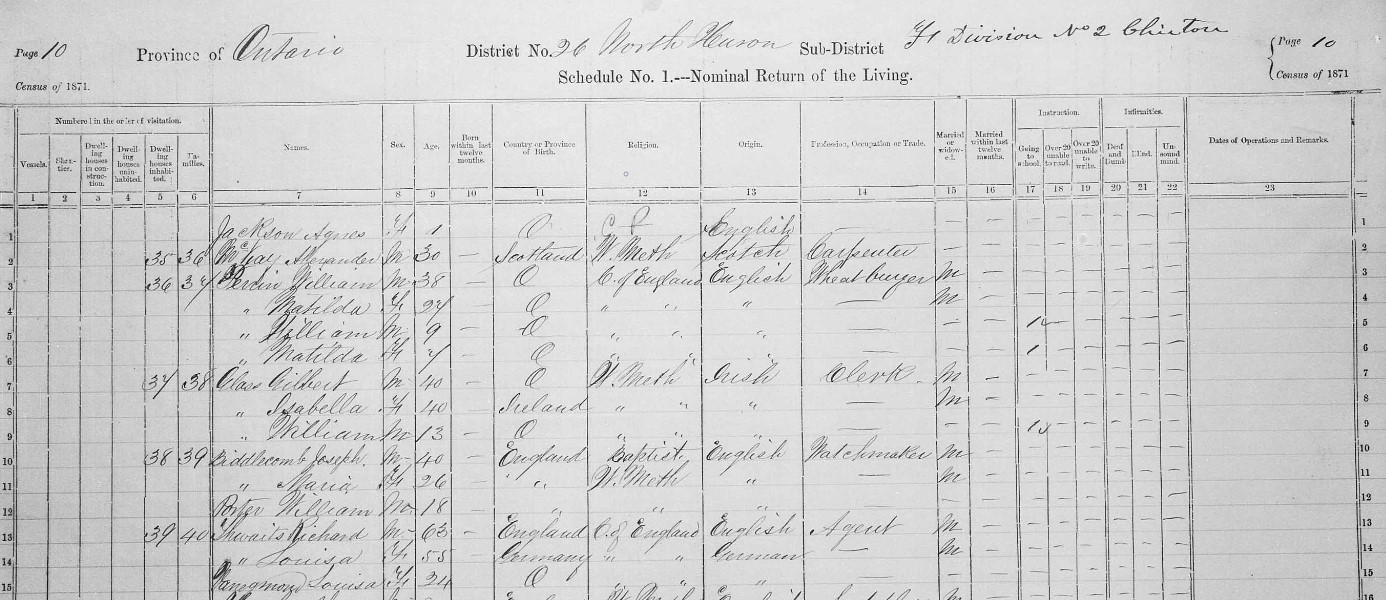 Page 10 Province of Ontario District No. 26 North Huron Sub-District F1 Division No 2 Clinton Page 10
Census of 1871. Schedule No. 1.---Nominal Return of the Living. Census of 1871
Numbered in the order of visitation. Instruction. Infirmities.
Vessels. Shan-tier. Dwell-ing houses in con-struc-tion. Dwell-ing houses unin-habited. Dwell-ing houses inhabi-ted. Fa-milies. Names. Sex. Age. Born within last twelve months. Country or Province of Birth. Religion. Origin. Profession, Occupation or Trade. Married or widow-ed. Married within last twelve months. Going to school. Over 20 unable to read. Over 20 unable to write. Deaf and Dumb. Blind. Un-sound mind. Dates of Operations and Remarks.
1 2 3 4 5 6 7 8 9 10 11 12 13 14 15 16 17 18 19 20 21 22 23
1 Jackson Agnes F 1 O C P English — — — — — — — 1
2 35 36 McKay Alexander M 30 — Scotland W. Meth Scotch Carpenter — — — — — — — 2
3 36 37 William M 38 — O C. of England English Wheat buyer M — — — — — — 3
4 " Matilda F 27 — O " " " — M — — — — — — 4
5 " William M 9 — O " " " — — — 1 — — — — — 5
6 " Matilda F 7 — O " " " — — — 1 — — — — — 6
7 37 38 Glass Gilbert M 40 — O W. Meth Irish Clerk M — — — — — — 7
8 " Isabella F 40 — Ireland " " " — M — — — — — — 8
9 " William M 13 — O " " " — — — 1 — — — — — 9
10 38 39 Biddlecomb Joseph. M 40 — England Baptist English Watchmaker M — — — — — — 10
11 " Maria F 26 — " " W. Meth " M — — — — — — 11
12 Porter William M 18 — " " " — — — — — — — 12
13 39 40 Thwaits Richard M 63 — England C. of England English Agent M — — — — — — 13
14 " Louisa F 55 — Germany " " German — M — — — — — — 14
15 Louisa F 24 — O " " " — — — — — — — 15
16